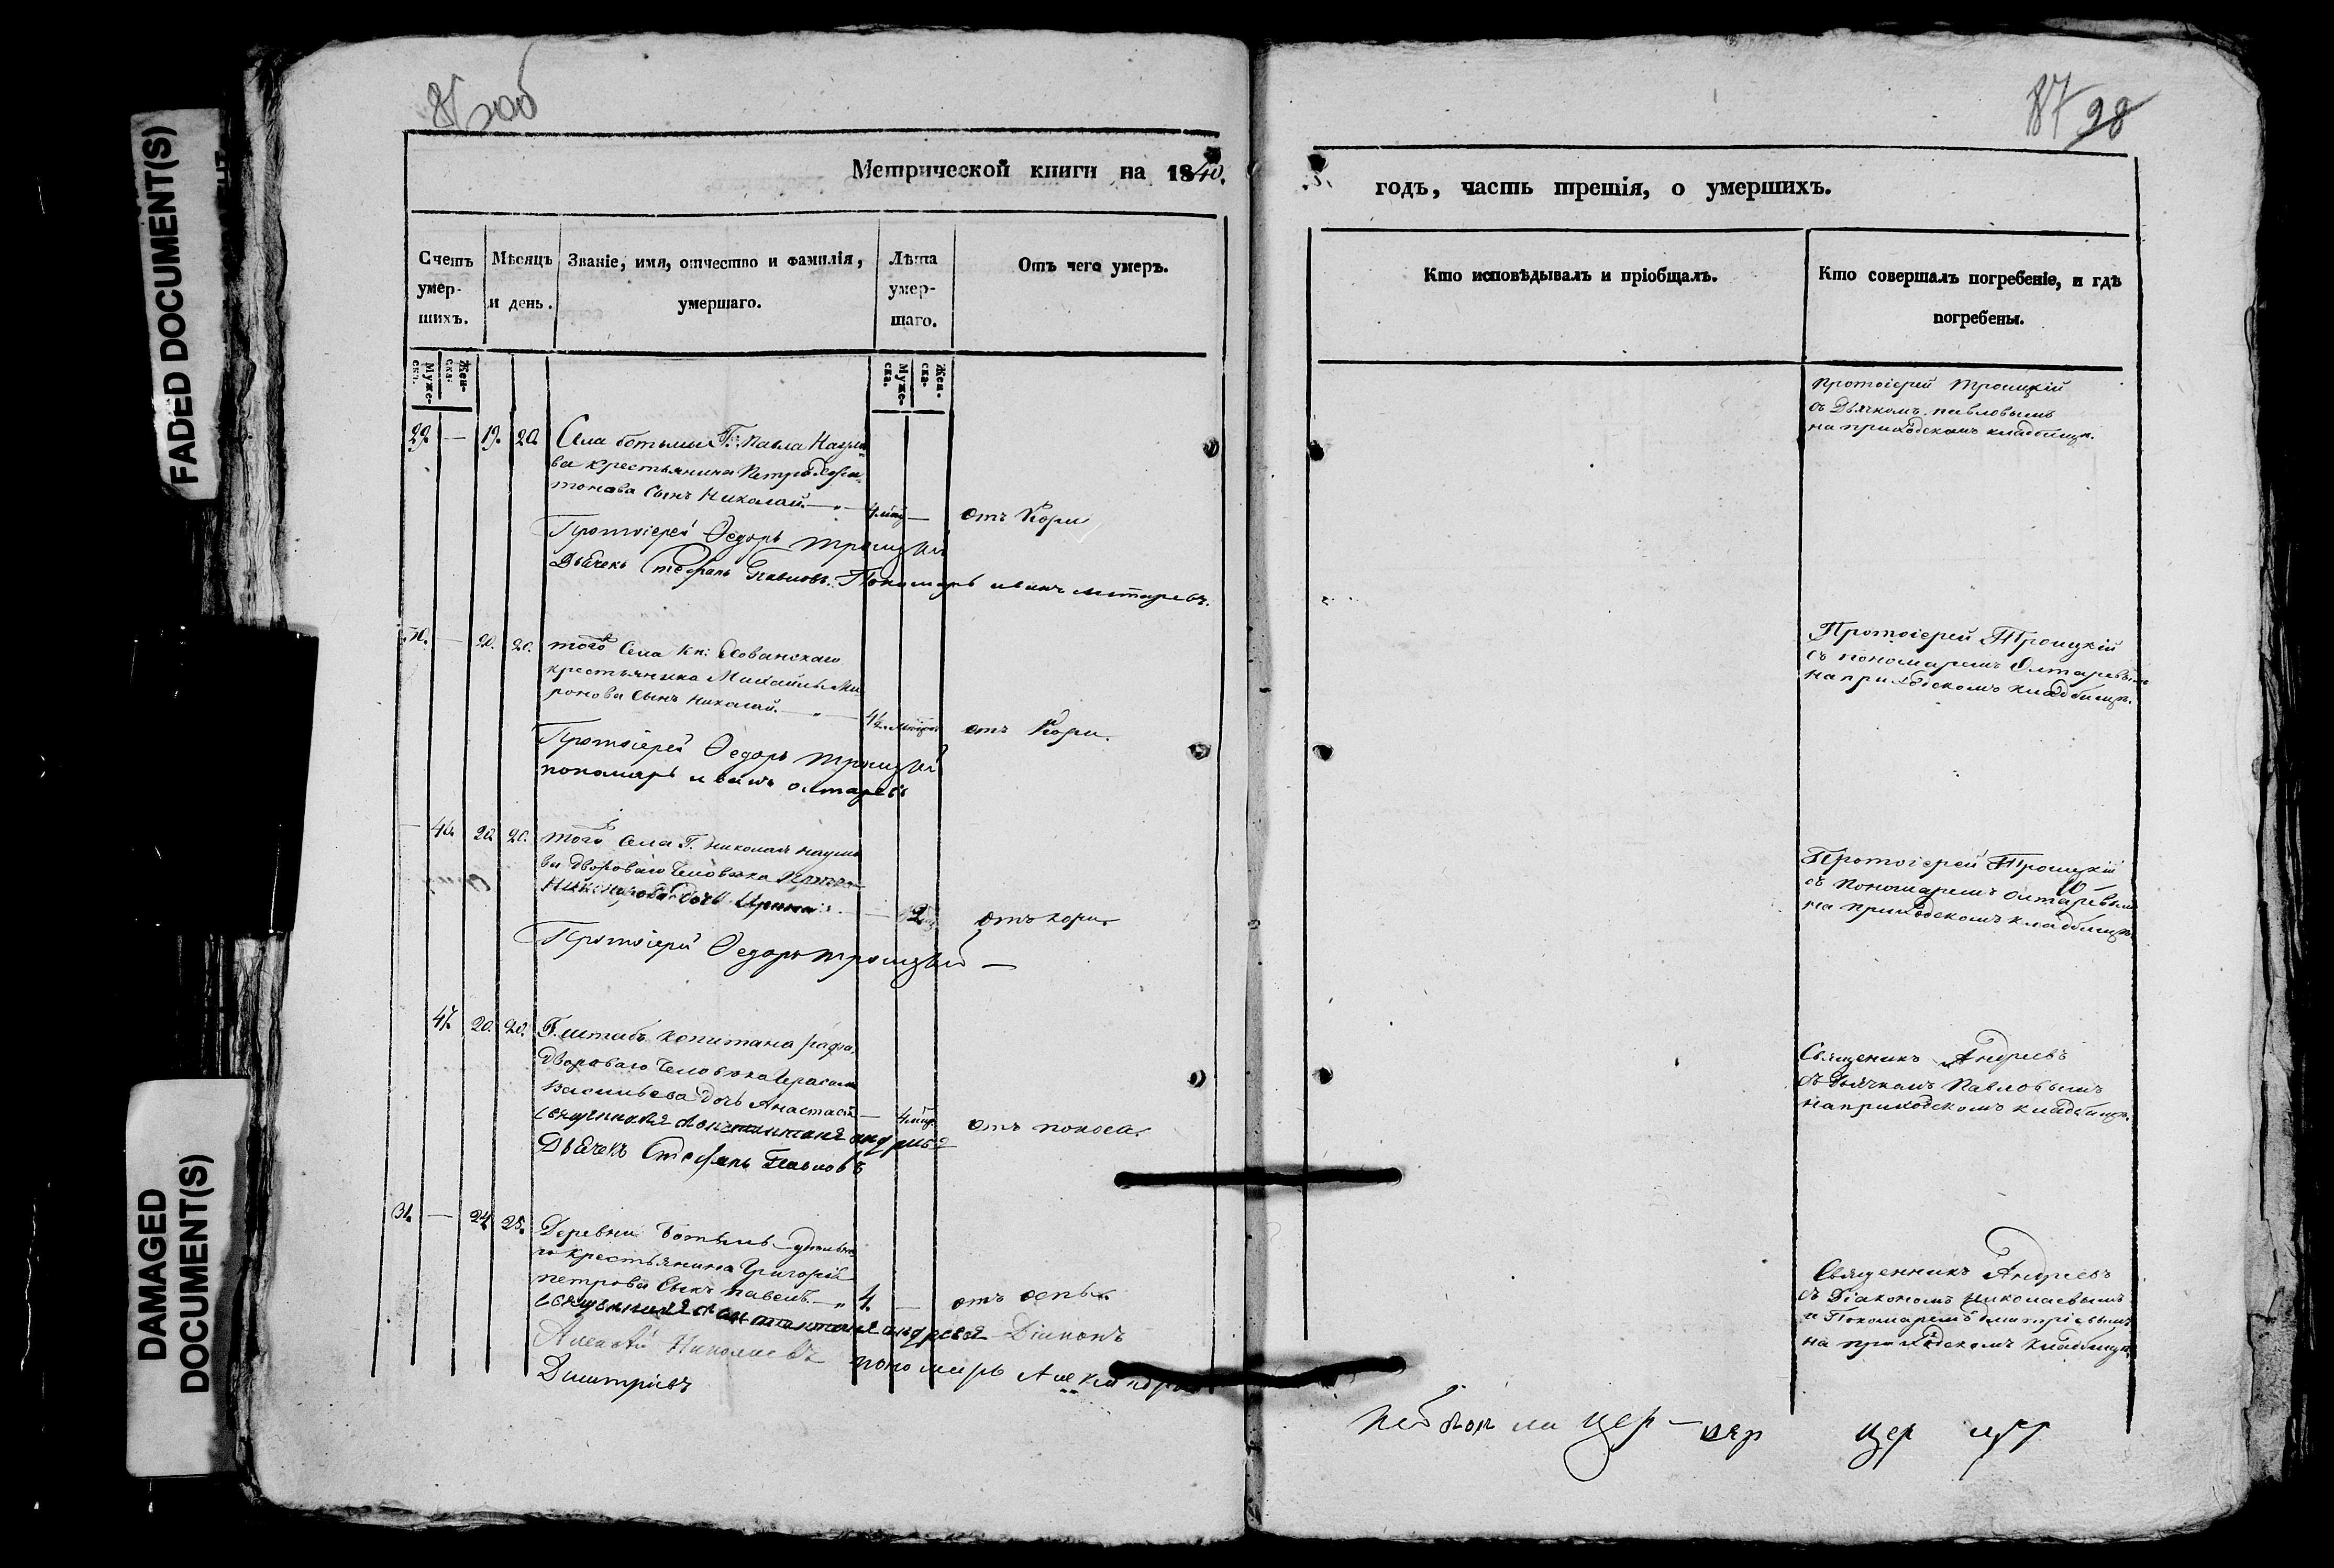 FADED DOCUMENT(S)
DAMAGED
DOCUMENT(S)
86 об
Метрической книги на 1840.
Счетъ умер-шихъ.
Мѣсяцъ и день.
Званіе, имя, отчество и фамилія, умершаго.
Лѣта умер-шаго.
Отъ чего умеръ.
Муже-ска.
Жен-ска.
Муже-ска.
Жен-ска.
29. — 19. 20. Села Г. Павла Наумо
ва крестьянина Петра Хари-
тонова Сынъ Николай. — отъ Кори
Протоіерей Ѳедоръ Троицкій
Дьячекъ Стефанъ Павловъ. Пономарь иванъ
30. — 20. 20. того Села Кн: Хованскаго
крестьянина Михайлы Ми-
ронова Сынъ Николай. — отъ Кори.
Протоіерей Ѳедоръ Троицкій
пономарь иванъ олтаревъ
— 46. 20. 20. того Села Г. Николая Наумо
ва двороваго Человѣка
дочь Ирина. — 2 отъ кори.
Протоіерей Ѳедоръ Троицкій —
47. 20. 20. Г. штабъ Капитана
двороваго Человѣка Герасима
Васильева дочь Анастасія — отъ поноса.
Дьячекъ Стефанъ Павловъ
31. — 24. 25. Деревни удѣльна
го крестьянина Григорія
петрова Сынъ павелъ. — 4. — отъ оспы.
Діаконъ
Алексѣй Николаевъ пономарь Александръ
Дмитріевъ
87 98
годъ, часть третія, о умершихъ.
Кто исповѣдывалъ и пріобщалъ.
Кто совершалъ погребеніе, и гдѣ погребены.
протоіерей Троицкій
съ Дьячкомъ павловымъ
на приходскомъ кладбищѣ.
Протоіерей Троицкій
съ пономаремъ Олтаревымъ
на приходскомъ кладбищѣ.
Протоіерей Троицкій
съ пономаремъ Олтаревымъ
на приходскомъ кладбищѣ.
Священникъ Андреевъ
съ Дьячкомъ Павловымъ
на приходскомъ кладбищѣ.
Священникъ Андреевъ
съ Діакономъ Николаевымъ
и Пономаремъ Дмитріевымъ
на приходскомъ кладбищѣ.
цер цер